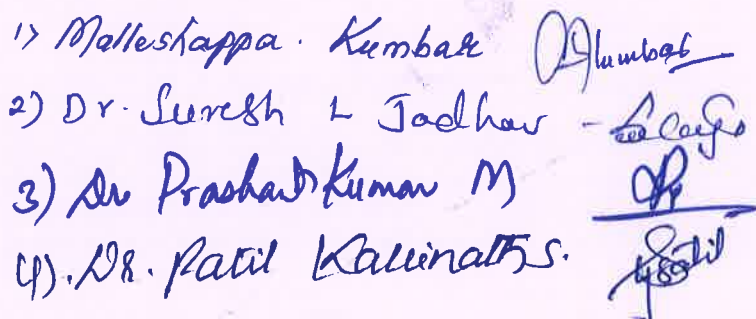 1) Malleshappa. Kumbar Kumbar
2) Dr. Suresh L Jadhav -
3) Dr Prashant Kumar M
4). Dr. Patil Kallinath S. Patil